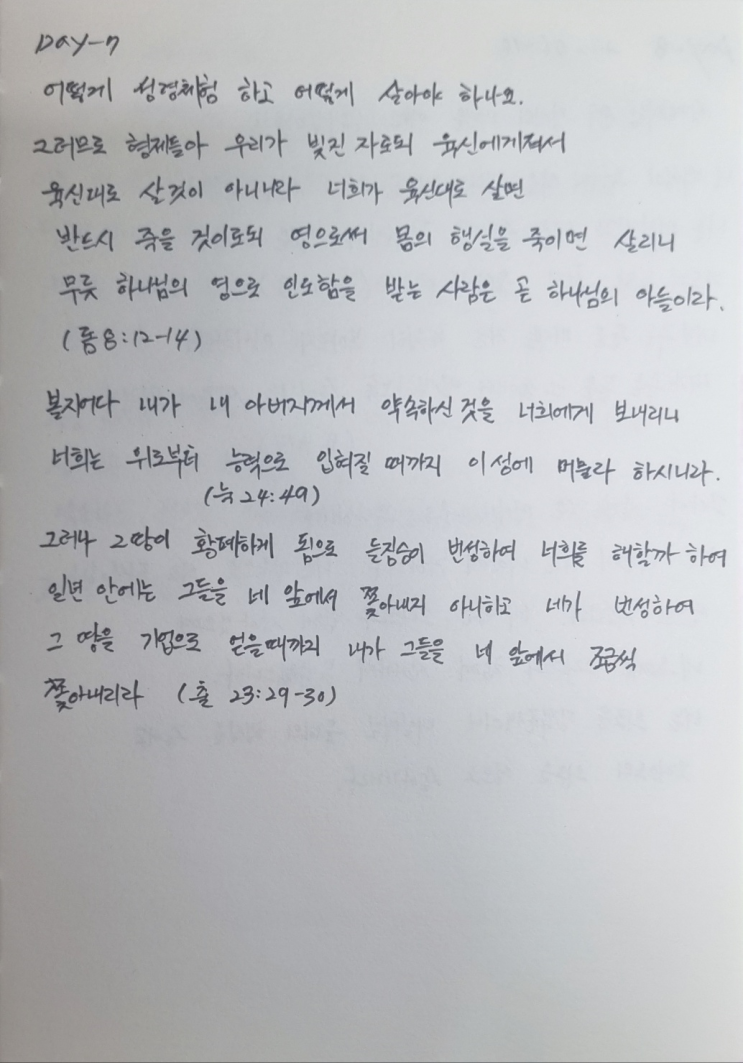 DAY-7
어떻게 성령체험 하고 어떻게 살아야 하나요.
그러므로 형제들아 우리가 빚진 자로되 육신에게져서
육신대로 살것이 아니니라 너희가 육신대로 살면
반드시 죽을 것이로되 영으로써 몸의 행실을 죽이면 살리니
무릇 하나님의 영으로 인도함을 받는 사람은 곧 하나님의 아들이라.
(롬 8:12-14)
볼지어다 내가 내 아버지께서 약속하신 것을 너희에게 보내리니
너희는 위로부터 능력으로 입혀질 때까지 이 성에 머물라 하시니라.
(눅 24:49)
그러나 그땅이 황폐하게 됨으로 들짐승이 번성하여 너희를 해할까 하여
일년 안에는 그들을 네 앞에서 쫓아내지 아니하고 네가 번성하여
그 땅을 기업으로 얻을때까지 내가 그들을 네 앞에서 조금씩
쫓아내리라 (출 23:29-30)